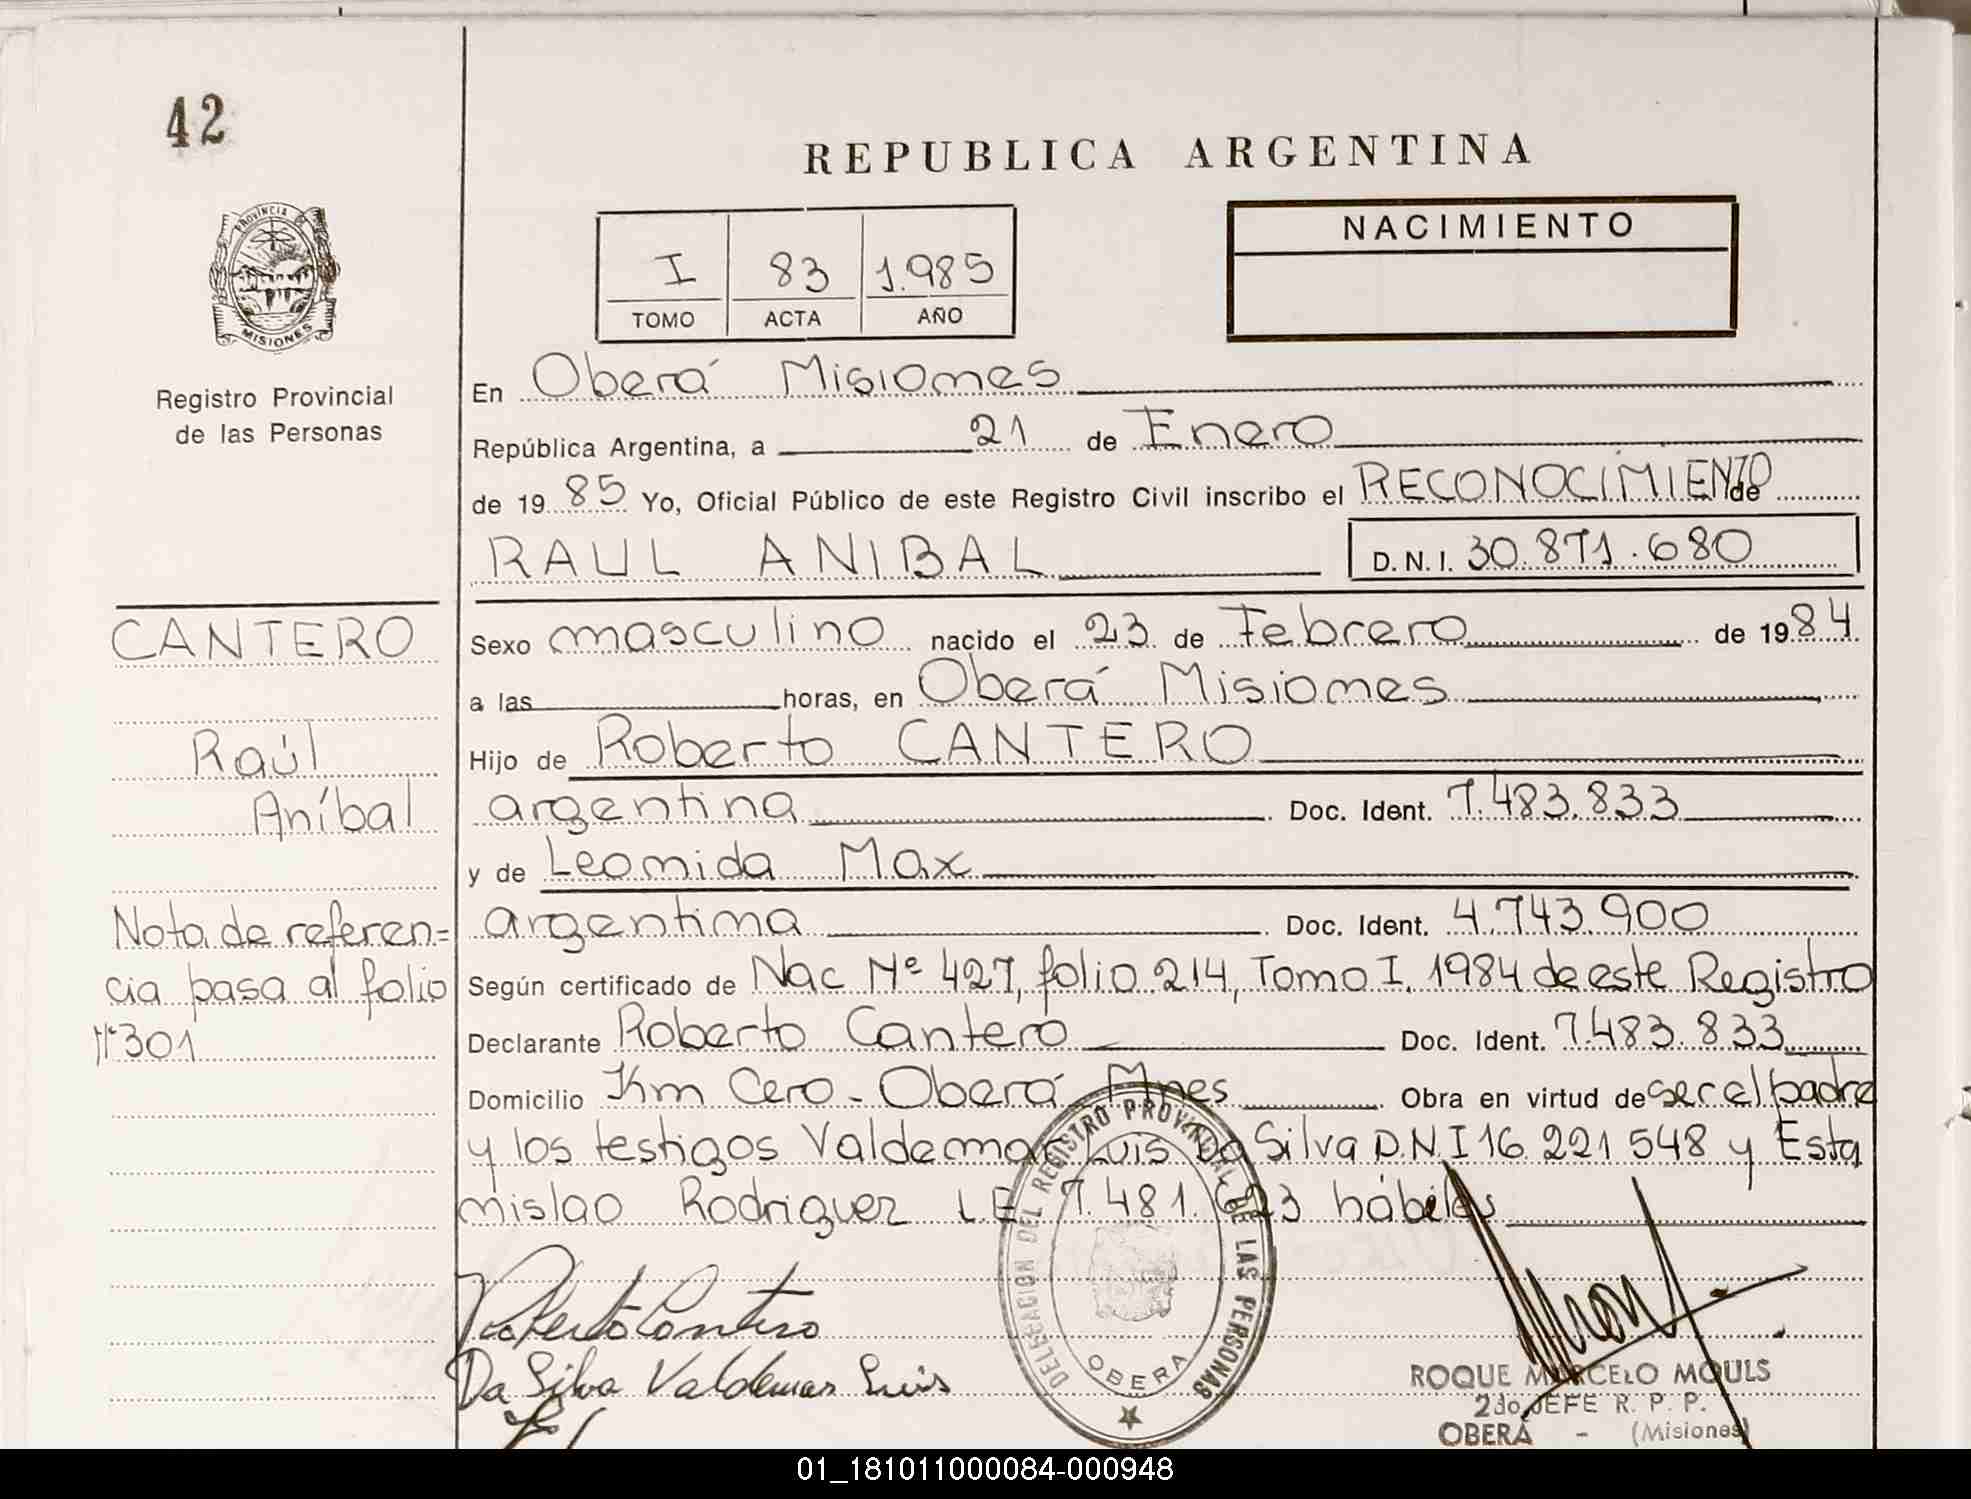 42
REPUBLICA ARGENTINA
PROVINCIA DE
MISIONES
Registro Provincial
de las Personas
I 83 1.985
TOMO ACTA AÑO
NACIMIENTO
En Oberá Misiones
República Argentina, a 21 de Enero
de 19 85 Yo, Oficial Público de este Registro Civil inscribo el RECONOCIMIENTO de
RAUL ANIBAL D.N.I. 30.871.680
CANTERO
Raúl
Aníbal
Nota de referen=
cia pasa al folio
Nº301
Sexo masculino nacido el 23 de Febrero de 1984
a las horas, en Oberá Misiones
Hijo de Roberto CANTERO
argentina Doc. Ident. 7.483.833
y de Leonida Max
argentina Doc. Ident. 4.743.900
Según certificado de Nac Nº 427, folio 214, Tomo I, 1984 de este Registro
Declarante Roberto Cantero Doc. Ident. 7.483.833
Domicilio Km Cero - Oberá Mnes Obra en virtud de ser el padre
y los testigos Valdemar Luis Da Silva D.N.I 16.221 548 y Esta
nislao Rodriguez L.E 7.481.623 hábiles
DELEGACION DEL REGISTRO PROVINCIAL DE LAS PERSONAS
OBERA
Roberto Cantero
Da Silva Valdemar Luis
ROQUE MARCELO MOULS
2do JEFE R. P. P.
OBERÁ - (Misiones)
01_181011000084-000948